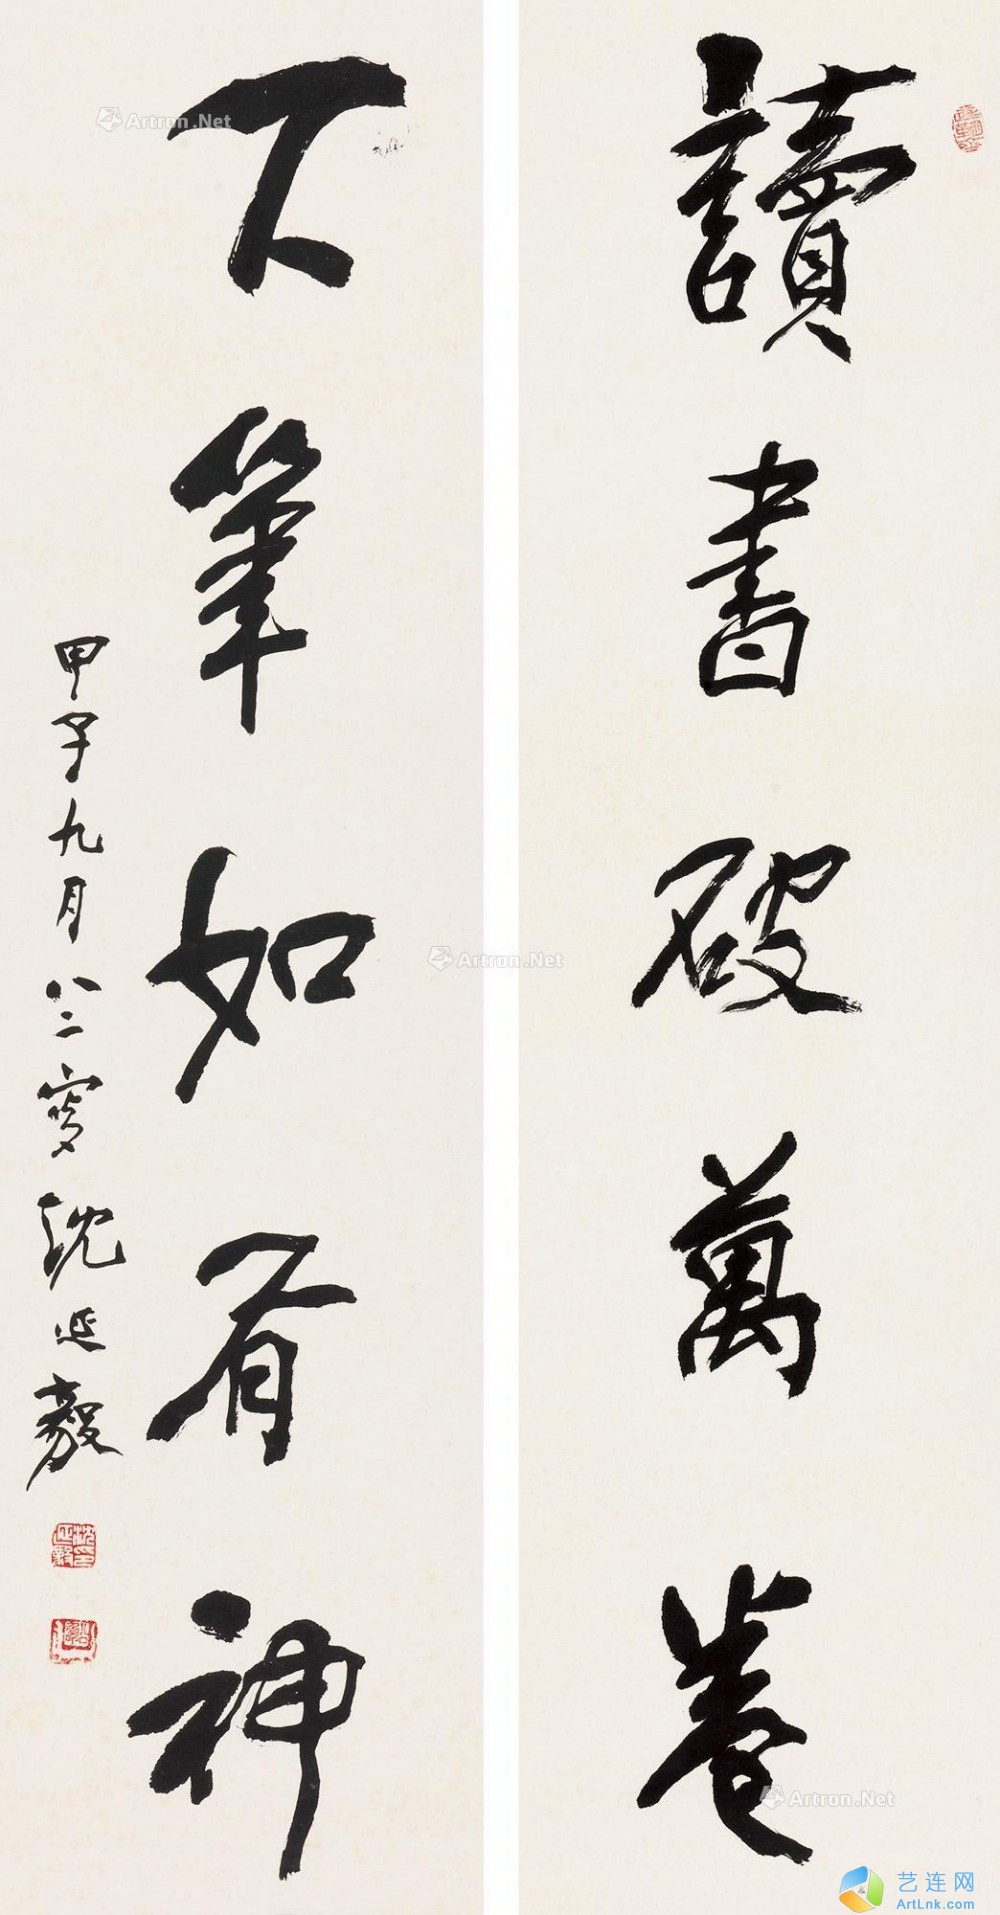 讀書破萬卷
下筆如有神
甲子九月八二叟沈延毅
Artron.Net
Artron.Net
Artron.Net
艺连网
ArtLnk.com